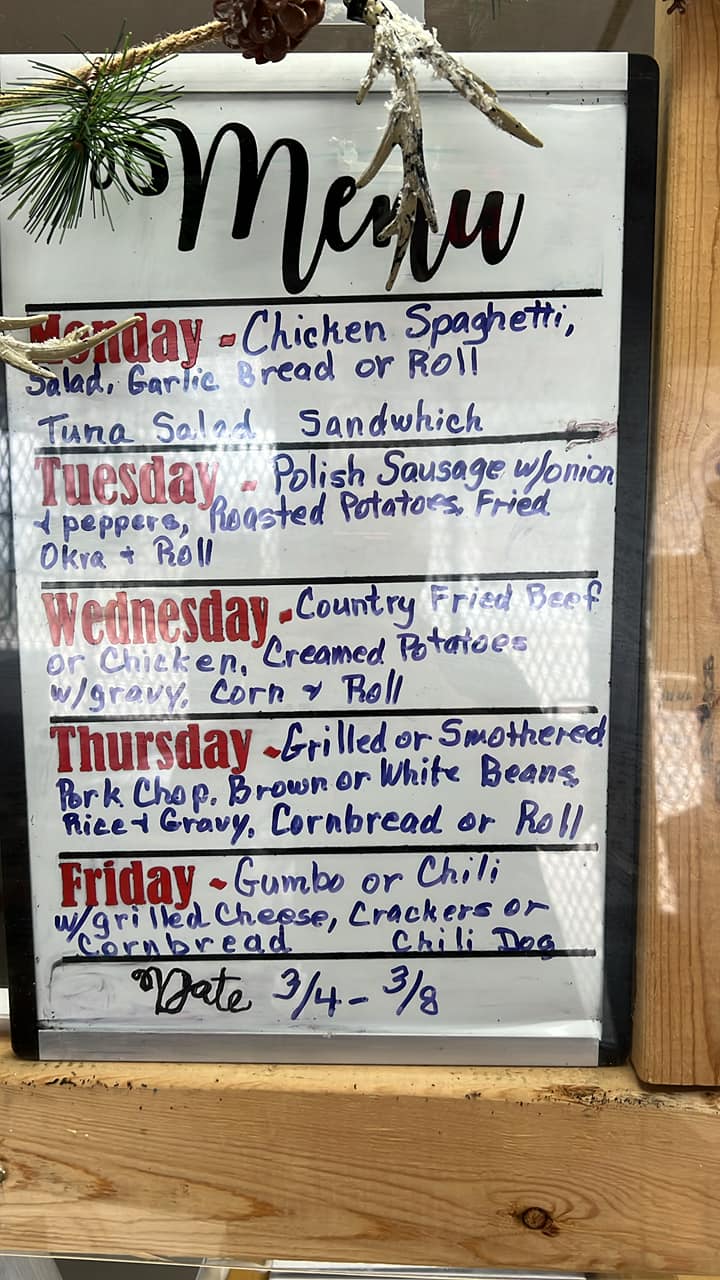 Menu
Monday - Chicken Spaghetti,
Salad, Garlic Bread or Roll
Tuna Salad Sandwhich
Tuesday - Polish Sausage w/onion
+ peppers, Roasted Potatoes, Fried
Okra + Roll
Wednesday - Country Fried Beef
or Chicken, Creamed Potatoes
w/gravy, Corn + Roll
Thursday - Grilled or Smothered
Pork Chop, Brown or White Beans,
Rice + Gravy, Cornbread or Roll
Friday - Gumbo or Chili
w/grilled Cheese, Crackers or
Cornbread Chili Dog
Date 3/4 - 3/8